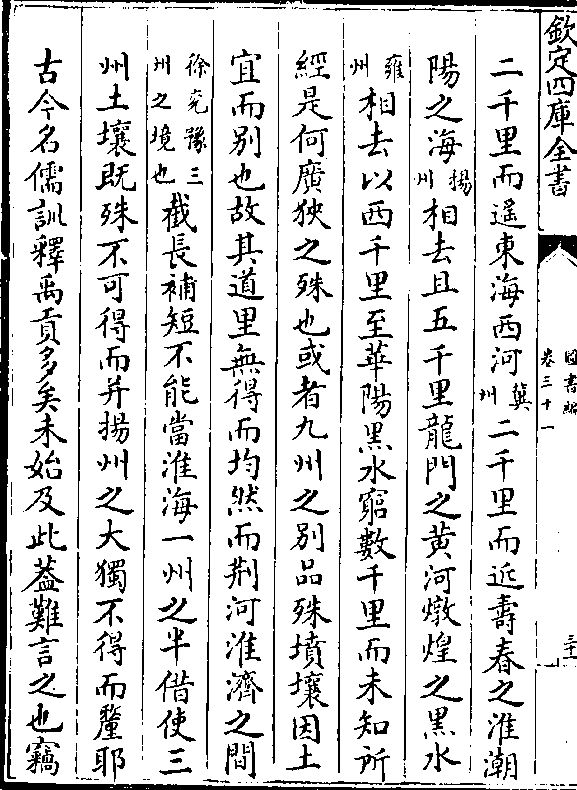 欽定四庫全書
圖書編
卷三十一
二千里而遥東海西河冀州二千里而近壽春之淮潮
陽之海揚州相去且五千里龍門之黄河燉煌之黒水
雍州相去以西千里至華陽黒水窮數千里而未知所
經是何廣狹之殊也或者九州之别品殊墳壤因土
宜而别也故其道里無得而均然而荆河淮濟之間
徐兖豫三州之境也截長補短不能當淮海一州之半借使三
州土壤既殊不可得而并揚州之大獨不得而釐耶
古今名儒訓釋禹貢多矣未始及此葢難言之也竊